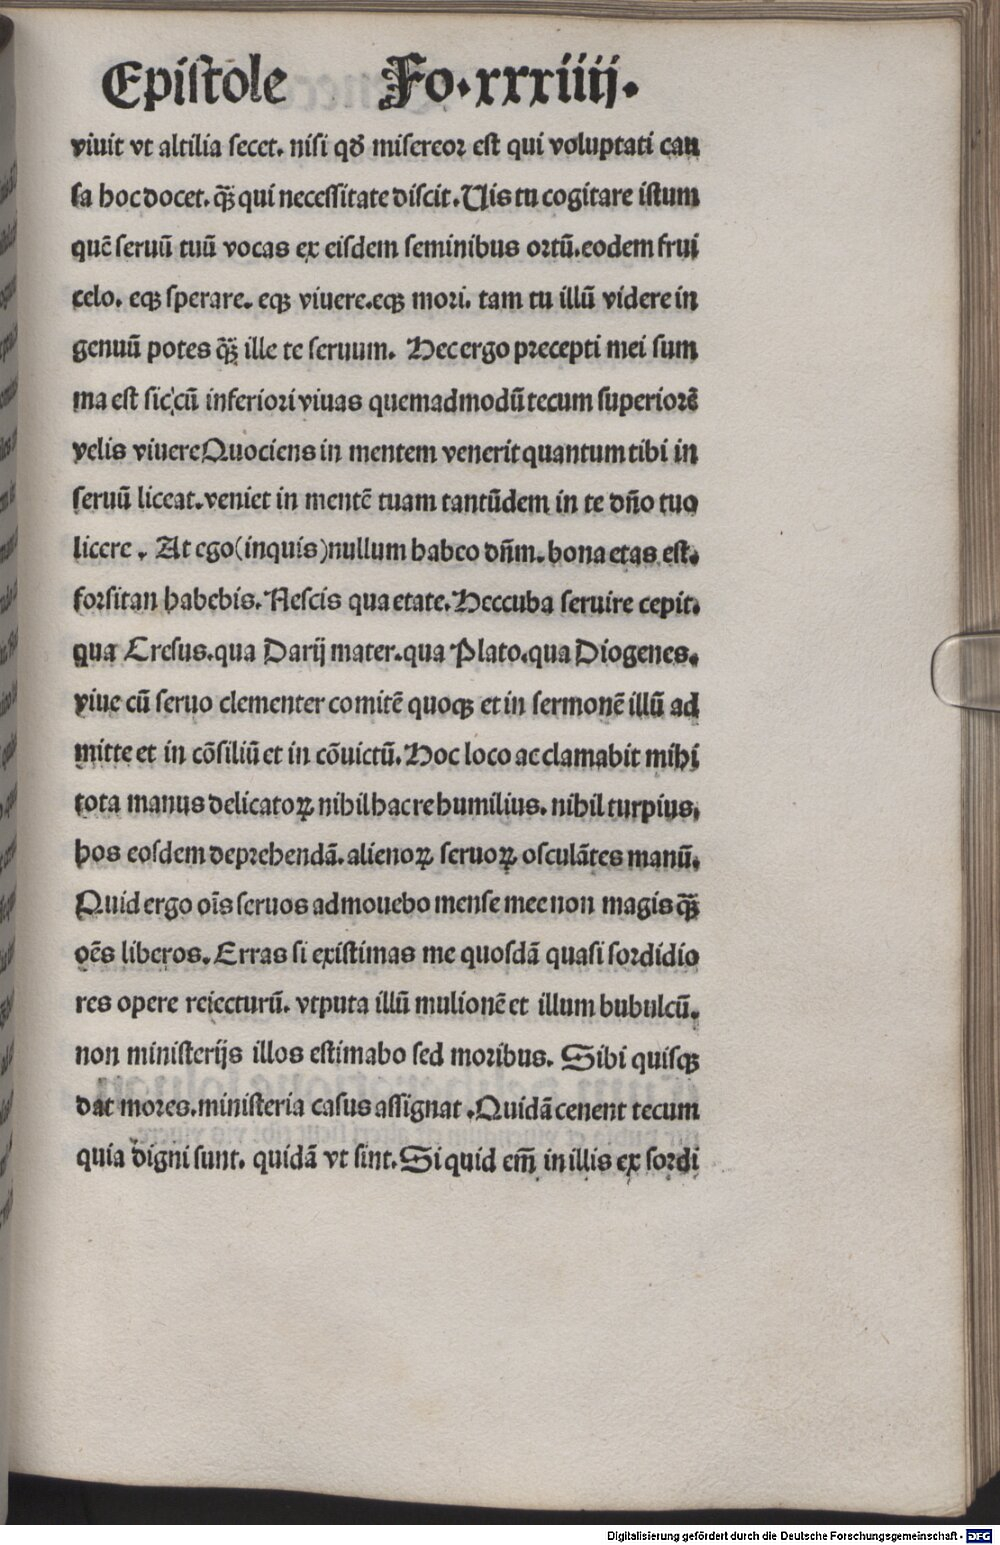 Epistole Fo.xxxiiij.
viuit vt altilia secet. nisi qđ misereor est qui voluptati cau
sa hoc docet. q̃ꝫ qui necessitate discit. Uis tu cogitare istum
quē seruū tuū vocas ex eisdem seminibus ortū. eodem frui
celo. eqꝫ sperare. eqꝫ viuere. eqꝫ mori. tam tu illū videre in
genuū potes q̃ꝫ ille te seruum. Hec ergo precepti mei sum
ma est sic cū inferiori viuas quemadmodū tecum superiorē
velis viuere Quociens in mentem venerit quantum tibi in
seruū liceat. veniet in mentē tuam tantūdem in te dño tuo
licere. At ego (inquis) nullum habeo dñm. bona etas est.
forsitan habebis. Nescis qua etate. Heccuba seruire cepit.
qua Cresus. qua Darij mater. qua Plato. qua Diogenes.
viue cū seruo clementer comitē quoqꝫ et in sermonē illū ad
mitte et in cōsiliū et in cōuictū. Hoc loco acclamabit mihi
tota manus delicatoꝝ nihil hac re humilius. nihil turpius,
hos eosdem deprehendā. alienoꝝ seruoꝝ osculātes manū.
Quid ergo oīs seruos admouebo mense mee non magis q̃ꝫ
oēs liberos. Erras si existimas me quosdā quasi sordidio
res opere reiecturū. vtputa illū mulionē et illum bubulcū.
non ministerijs illos estimabo sed moribus. Sibi quisqꝫ
dat mores. ministeria casus assignat. Quidā cenent tecum
quia digni sunt. quidā vt sint. Si quid em̄ in illis ex sordi
Digitalisierung gefördert durch die Deutsche Forschungsgemeinschaft - DFG